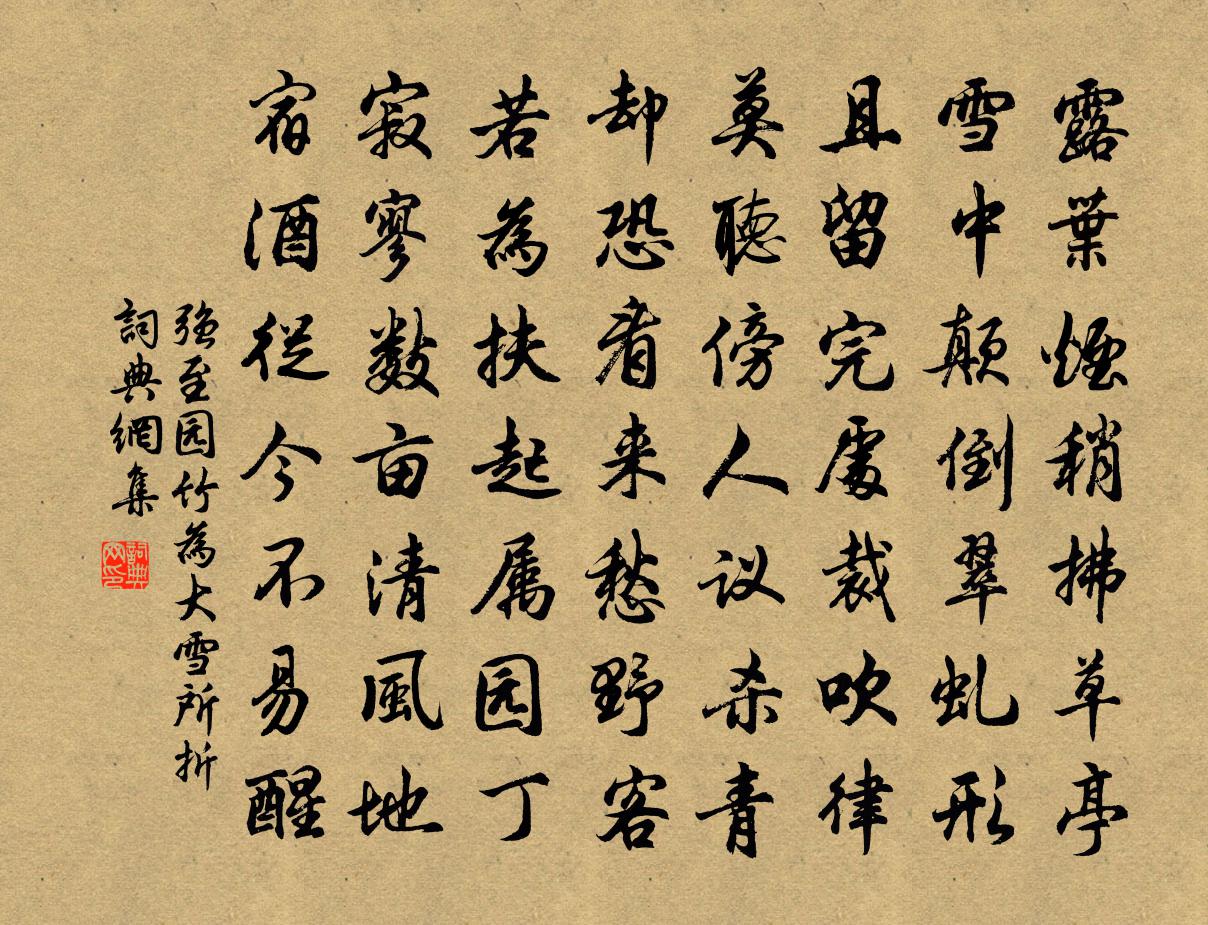 露葉煙稍拂草亭
雪中顛倒翠虬形
且留完處裁吹律
莫聽傍人议杀青
却恐看来愁野客
若為扶起属园丁
寂寥数亩清風地
宿酒從今不易醒
强至园竹為大雪所折
詞典網集
詞典網印